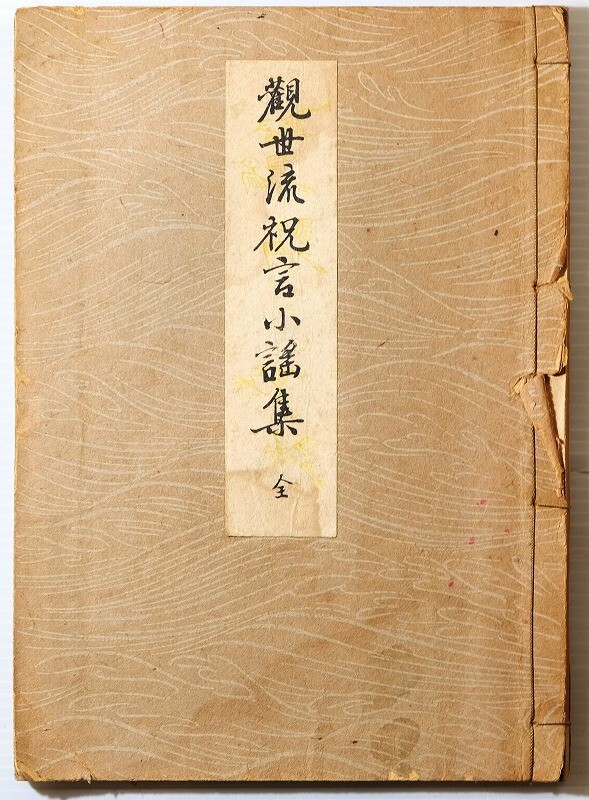 觀世流祝言小謠集 全